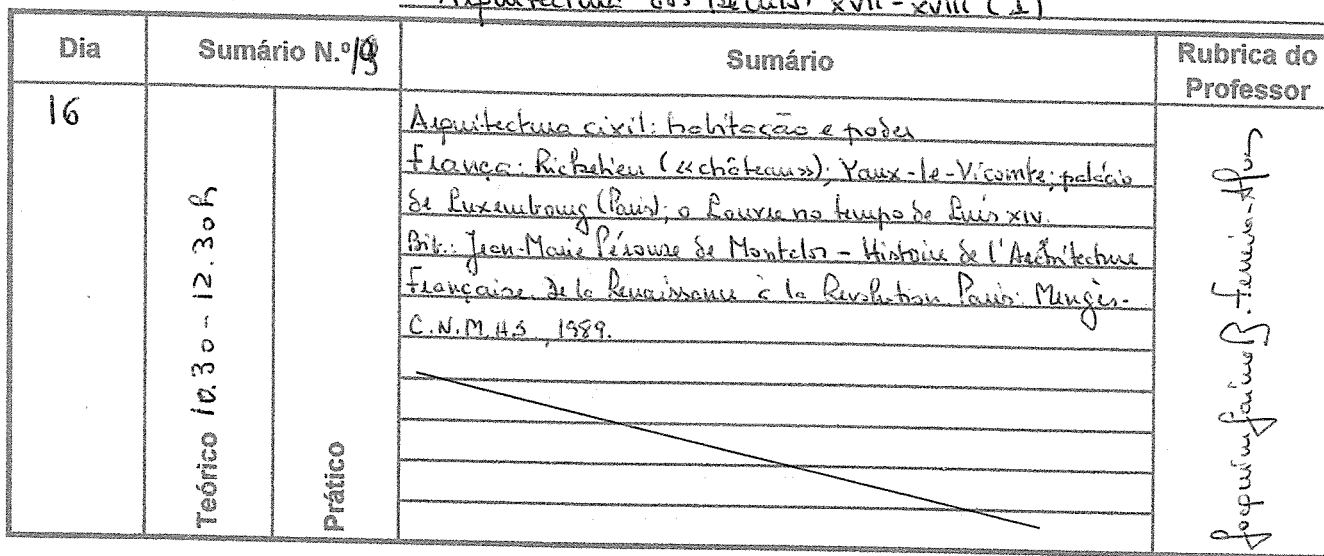 Arquitectura dos séculos XVII-XVIII (1)
Dia
Sumário N.º 19
Sumário
Rubrica do Professor
16
Teórico 10.30 - 12.30h
Prático
Arquitectura civil: habitação e poder
França: Richelieu («château»); Vaux-le-Vicomte; palácio
de Luxembourg (Paris); o Louvre no tempo de Luís XIV.
Bib.: Jean-Marie Pérouse de Montclos - Histoire de l'Architecture
Française. De la Renaissance à la Revolution. Paris: Mengès-
C.N.M.H.S., 1989.
Joaquim Jaime B. Ferreira-Alves